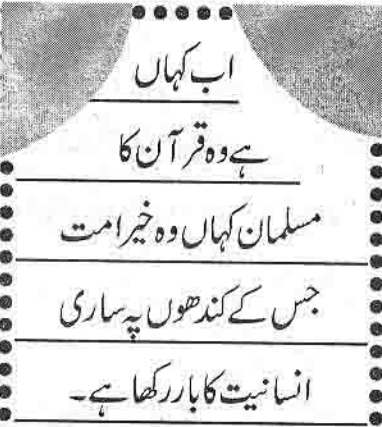 اب کہاں
ہے وہ قرآن کا
مسلمان کہاں وہ خیر امت
جس کے کندھوں پہ ساری
انسانیت کا بار رکھا ہے۔